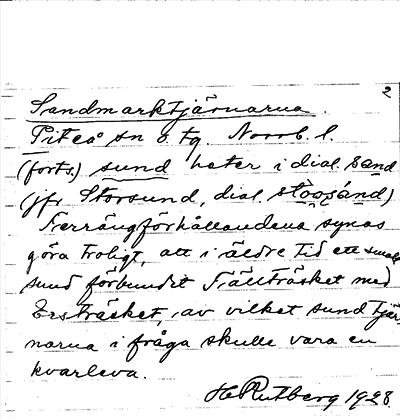 2
Sandmarktjärnarna.
Piteå sn o. tg. Norrb. l.
(forts.) sund heter i dial. sand
(jfr Storsund, dial. stoosånd)
Terrängförhållandena synas
göra troligt, att i äldre tid ett smalt
sund förbundit Fjällträsket med
Ersträsket, av vilket sund tjär-
narna i fråga skulle vara en
kvarleva.
H Rutberg 1928.